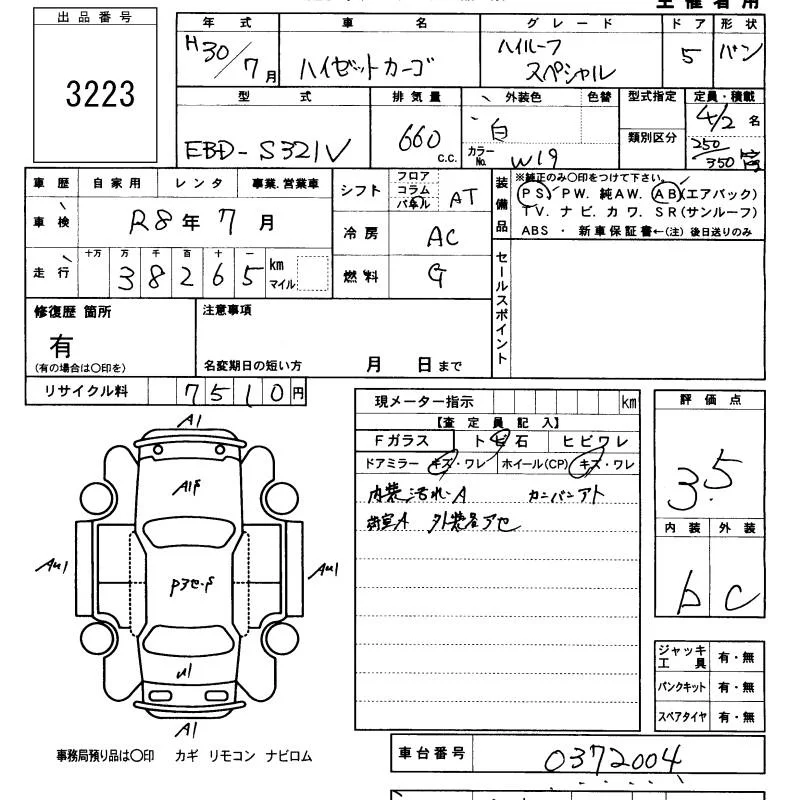 出品番号
3223
年式 車名 グレード ドア 形状
H30/7月 ハイゼットカーゴ ハイルーフ スペシャル 5 バン
型式 排気量 外装色 色替 型式指定 定員・積載
類別区分
EBD-S321V 660 C.C. 白 カラーNo. W19 4/2名 250/350
車歴 自家用 レンタ 事業.営業車
車検 R8年7月
走行 十万 万 千 百 十 一
38265 km マイル
シフト フロア コラム パネル AT
冷房 AC
燃料 G
装備品
※純正のみ〇印をつけて下さい。
PS. PW. 純AW. AB(エアバック)
TV. ナビ. カワ. SR(サンルーフ)
ABS ・ 新車保証書←(注) 後日送りのみ
セールスポイント
修復歴 箇所
有
(有の場合は〇印を)
注意事項
名変期日の短い方 月 日まで
リサイクル料 7510円
現メーター指示 km
【査定員記入】
Fガラス ト飛石 ヒビワレ
ドアミラー キズ・ワレ ホイール(CP) キズ・ワレ
内装汚れA カンバンアト
荷室A 外装各アセ
評価点
3.5
内装 外装
b c
A1
A1P
AU1 AU1
U1
A1
ジャッキ工具 有・無
パンクキット 有・無
スペアタイヤ 有・無
事務局預り品は〇印 カギ リモコン ナビロム
車台番号 0372004